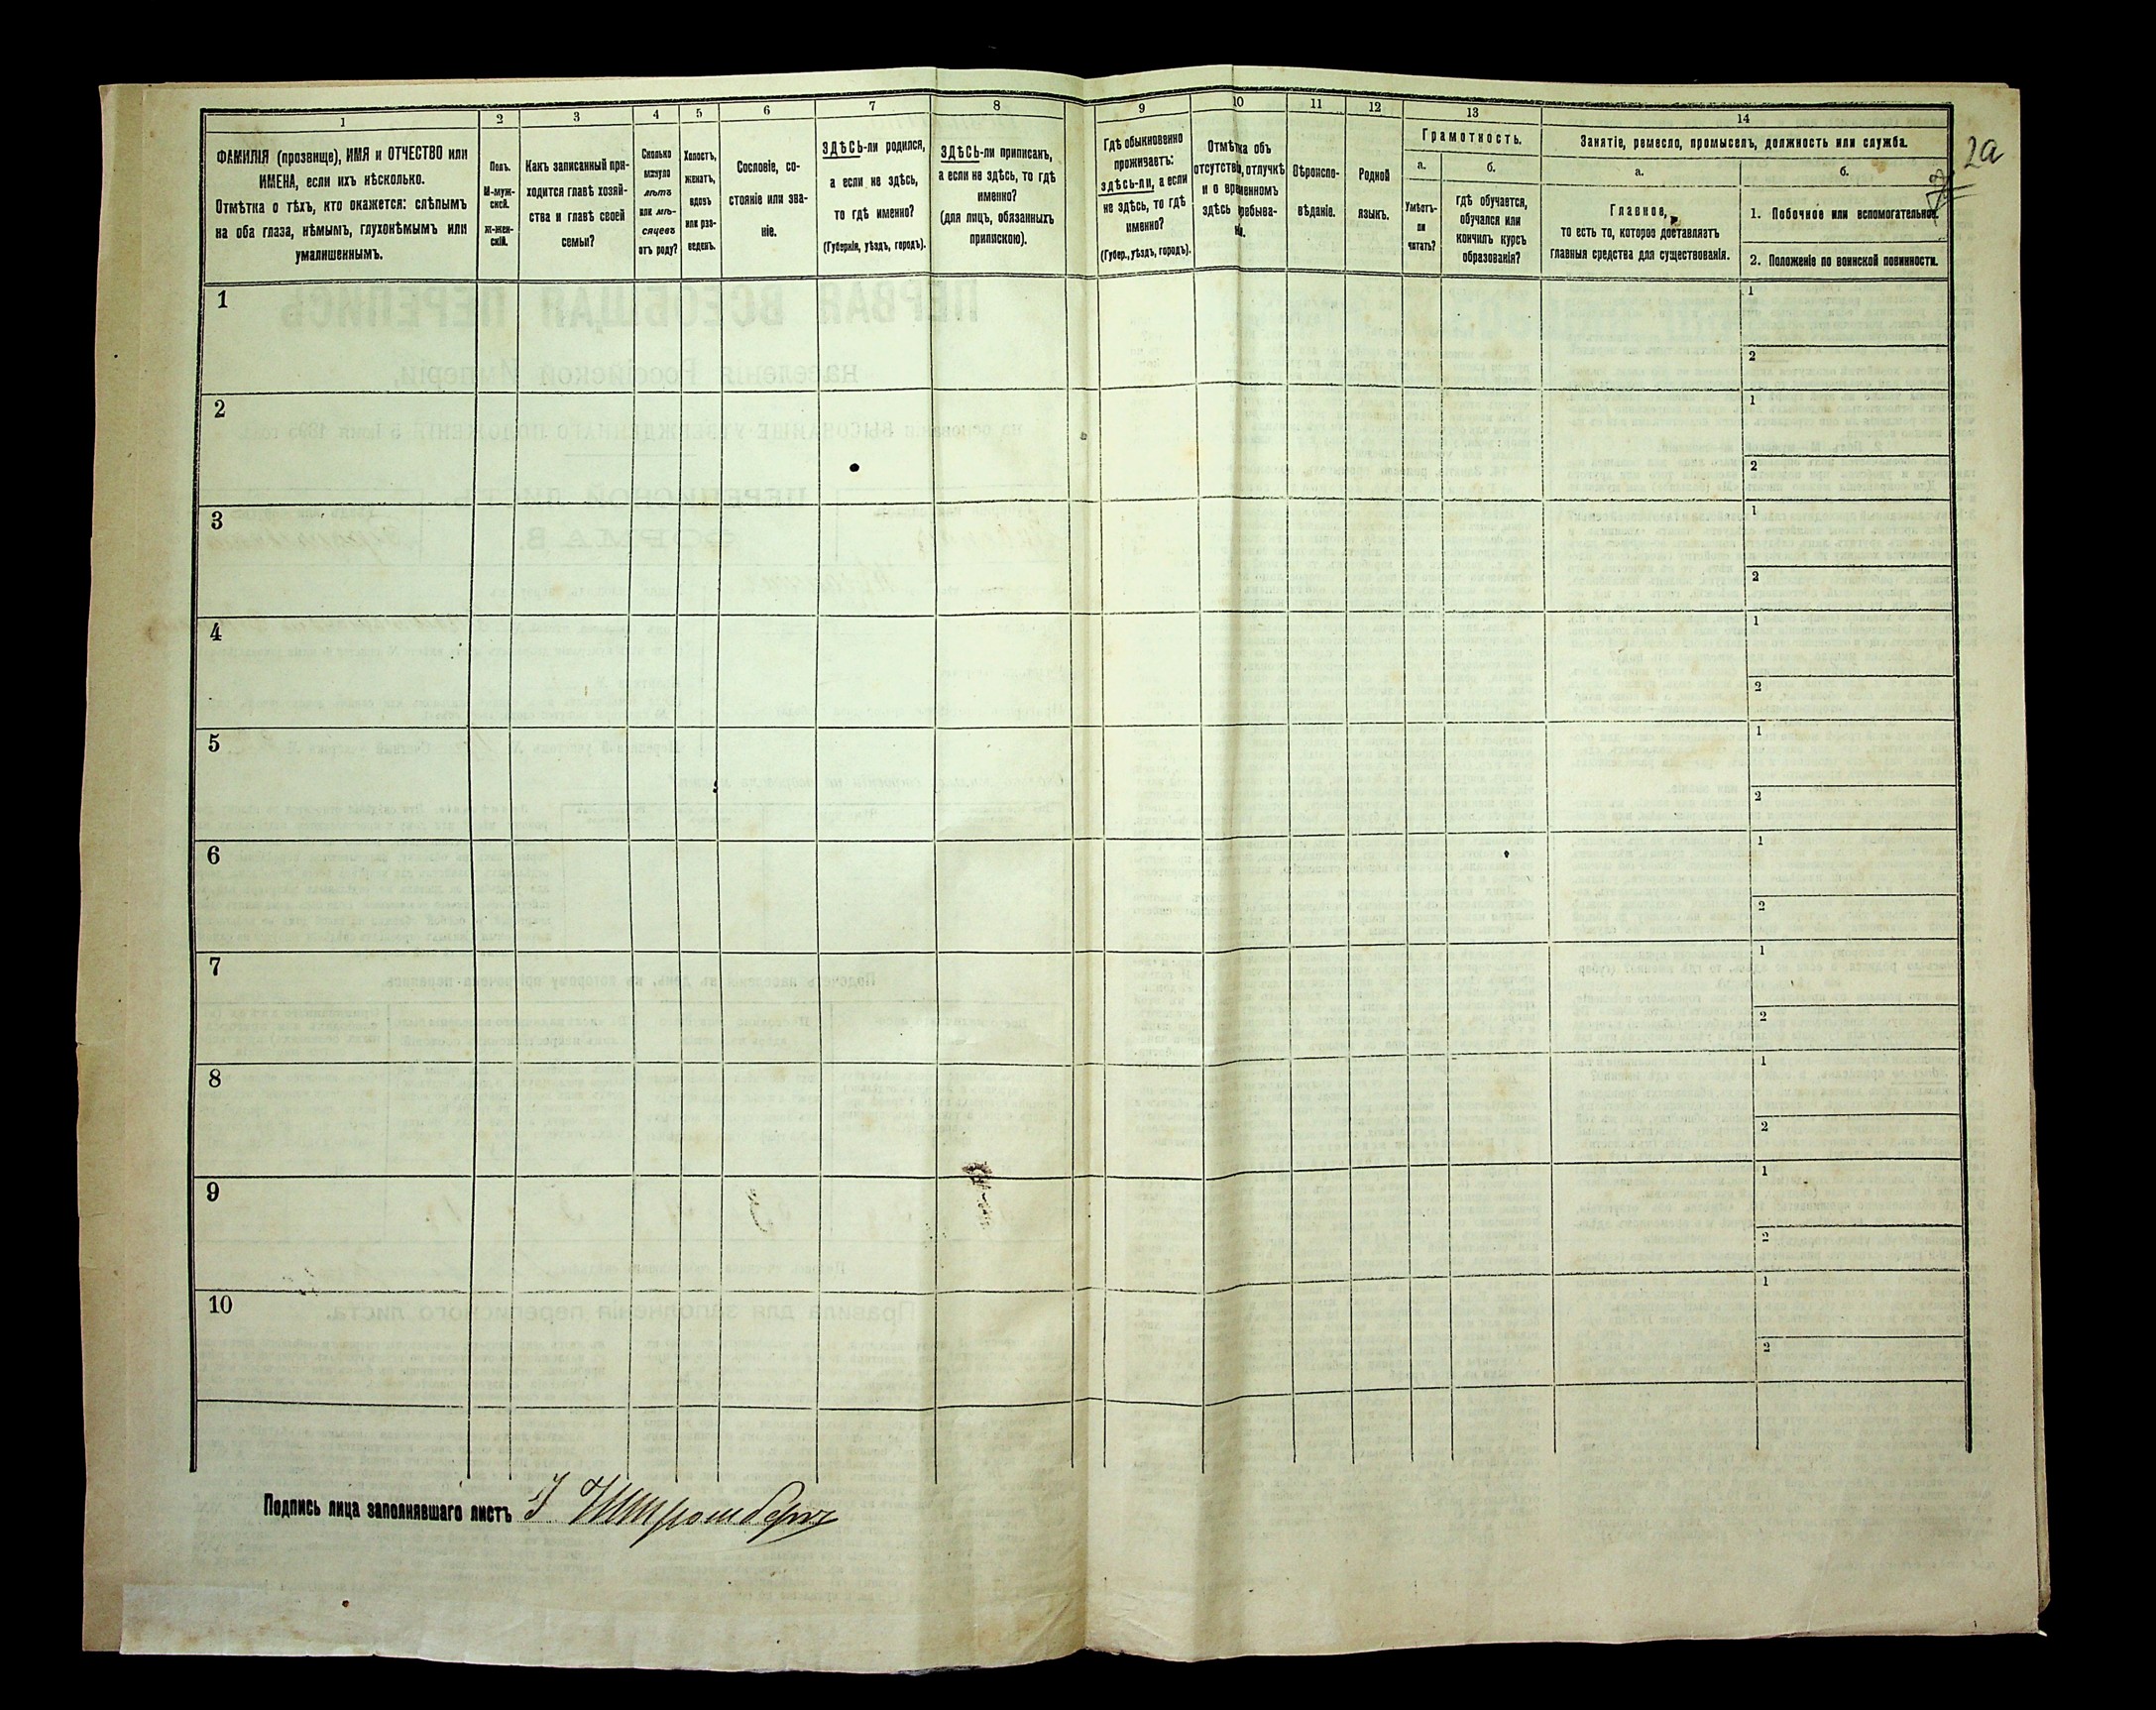 1
ФАМИЛІЯ (прозвище), ИМЯ и ОТЧЕСТВО или
ИМЕНА, если ихъ нѣсколько.
Отмѣтка о тѣхъ, кто окажется: слѣпымъ
на оба глаза, нѣмымъ, глухонѣмымъ или
умалишеннымъ.
2
Полъ.
М-муж-
ской.
Ж-жен-
скій.
3
Какъ записанный при-
ходится главѣ хозяй-
ства и главѣ своей
семьи?
4
Сколько
минуло
лѣтъ
или мѣ-
сяцевъ
отъ роду?
5
Холостъ,
женатъ,
вдовъ
или раз-
веденъ.
6
Сословіе, со-
стояніе или зва-
ніе.
7
ЗДѢСЬ-ли родился,
а если не здѣсь,
то гдѣ именно?
(Губернія, уѣздъ, городъ).
8
ЗДѢСЬ-ли приписанъ,
а если не здѣсь, то гдѣ
именно?
(для лицъ, обязанныхъ
припискою).
9
Гдѣ обыкновенно
проживаетъ:
здѣсь-ли, а если
не здѣсь, то гдѣ
именно?
(Губер., уѣздъ, городъ).
10
Отмѣтка объ
отсутствіи, отлучкѣ
и о временномъ
здѣсь пребыва-
ніи.
11
Вѣроиспо-
вѣданіе.
12
Родной
языкъ.
13
Грамотность.
а.
Умѣетъ-
ли
читать?
б.
гдѣ обучается,
обучался или
кончилъ курсъ
образованія?
14
Занятіе, ремесло, промыселъ, должность или служба.
а.
Главное,
то есть то, которое доставляетъ
главныя средства для существованія.
б.
1. Побочное или вспомогательное.
2. Положеніе по воинской повинности.
2а
1
1
2
2
1
2
3
1
2
4
1
2
5
1
2
6
1
2
7
1
2
8
1
2
9
1
2
10
1
2
Подпись лица заполнявшаго листъ